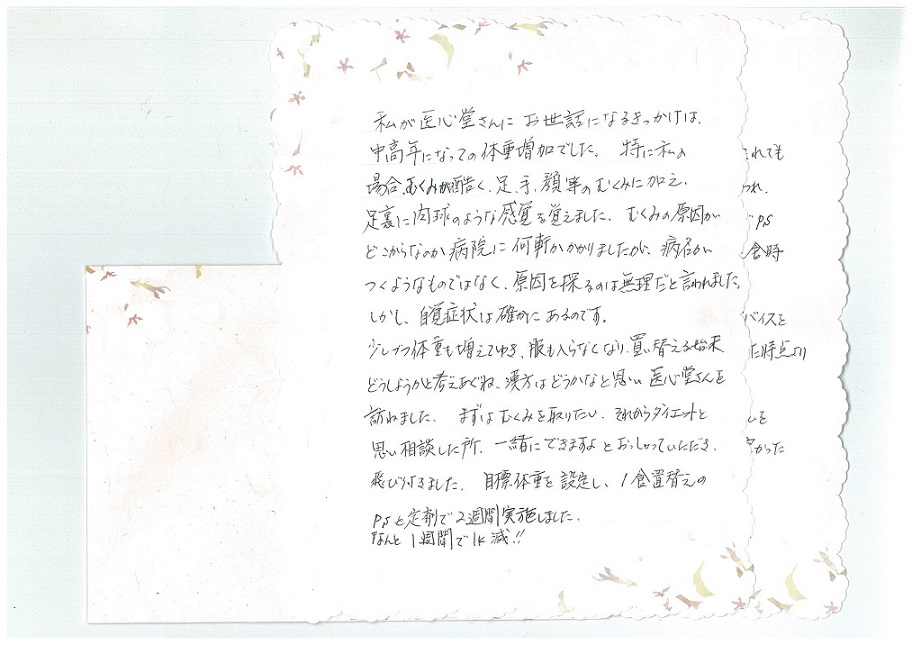 私が医心堂さんに お世話になるきっかけは、
中高年になっての体重増加でした。 特に私の
場合、むくみが酷く、足、手、顔等のむくみに加え、
足裏に肉球のような感覚を覚えました。 むくみの原因が
どこからなのか病院に何軒かかかりましたが、病名が
つくようなものではなく、原因を探るのは無理だと言われました。
しかし、自覚症状は確かにあるのです。
少しづつ体重も増えてゆき、服も入らなくなり、買い替える始末
どうしようかと考えあぐね、漢方はどうかなと思い 医心堂さんを
訪ねました。 まずはむくみを取りたい、それからダイエットと
思い相談した所、一緒にできますよ とおっしゃっていただき、
飛びつきました。 目標体重を設定し、1食置替えの
PSと定剤で2週間実施しました。
なんと1週間で1k減!!
これても
われ、
PS
食時
バイスを
た時点より
を
かった